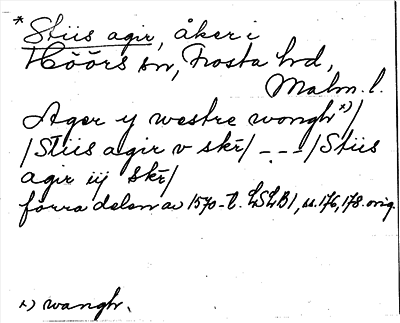 * Stiis agir, åker i
Höörs sn, Frosta hd,
Malm. l.
Ager y westre wongh x)/
/Stiis agir v skr̄/ - - - /Stiis
agir iij skr̄/
förra delen av 1570-t. LSLB1, ss. 176, 178. orig.
x) wangh.